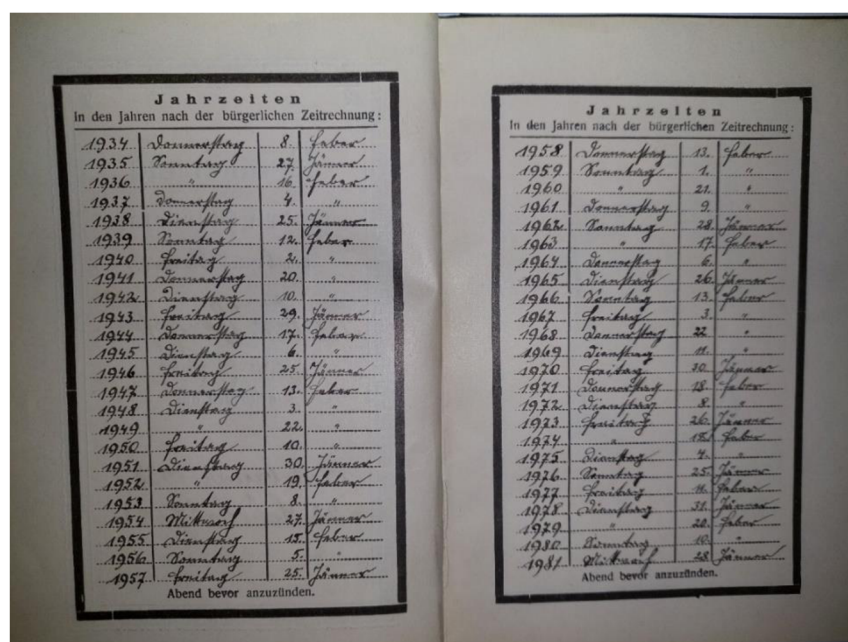 Jahrzeiten
In den Jahren nach der bürgerlichen Zeitrechnung:
1934 Donnerstag 8. Feber
1935 Sonntag 27. Jänner
1936 " 16. Feber
1937 Donnerstag 4. "
1938 Dienstag 25. Jänner
1939 Sonntag 12. Feber
1940 Freitag 2. "
1941 Donnerstag 20. "
1942 Dienstag 10. "
1943 Freitag 29. Jänner
1944 Donnerstag 17. Feber
1945 Dienstag 6. "
1946 Freitag 25. Jänner
1947 Donnerstag 13. Feber
1948 Dienstag 3. "
1949 " 22. "
1950 Freitag 10. "
1951 Dienstag 30. Jänner
1952 " 19. Feber
1953 Sonntag 8. "
1954 Mittwoch 27. Jänner
1955 Dienstag 15. Feber
1956 Sonntag 5. "
1957 Freitag 25. Jänner
Abend bevor anzuzünden.
Jahrzeiten
In den Jahren nach der bürgerlichen Zeitrechnung:
1958 Donnerstag 13. Feber
1959 Sonntag 1. "
1960 " 21. "
1961 Donnerstag 9. "
1962 Sonntag 28. Jänner
1963 " 17. Feber
1964 Donnerstag 6. "
1965 Dienstag 26. Jänner
1966 Sonntag 13. Feber
1967 Freitag 3. "
1968 Donnerstag 22 "
1969 Dienstag 11. "
1970 Freitag 30. Jänner
1971 Donnerstag 18. Feber
1972 Dienstag 8. "
1973 Freitag 26. Jänner
1974 " 15. Feber
1975 Dienstag 4. "
1976 Sonntag 25. Jänner
1977 Freitag 11. Feber
1978 Dienstag 31. Jänner
1979 " 20. Feber
1980 Sonntag 10. "
1981 Mittwoch 28. Jänner
Abend bevor anzuzünden.